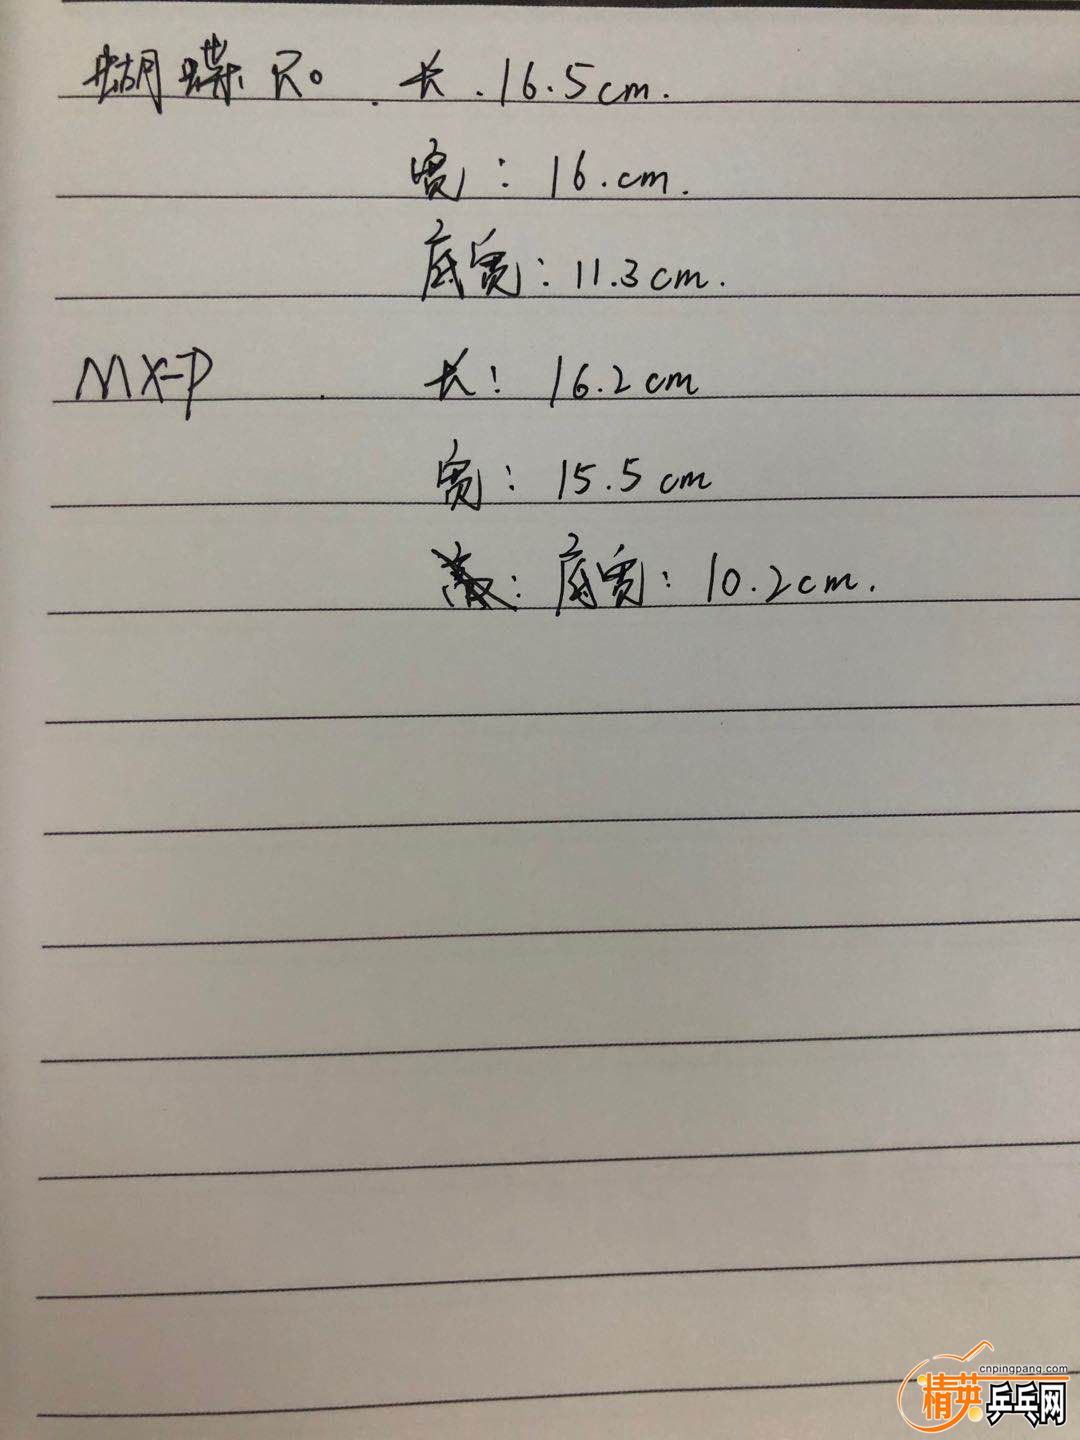 蝴蝶R0 . 长.16.5cm.
宽：16.cm.
底宽：11.3cm.
MX-P . 长：16.2cm
宽：15.5cm
：底宽：10.2cm.
cnpingpang.com
精英乒乓网